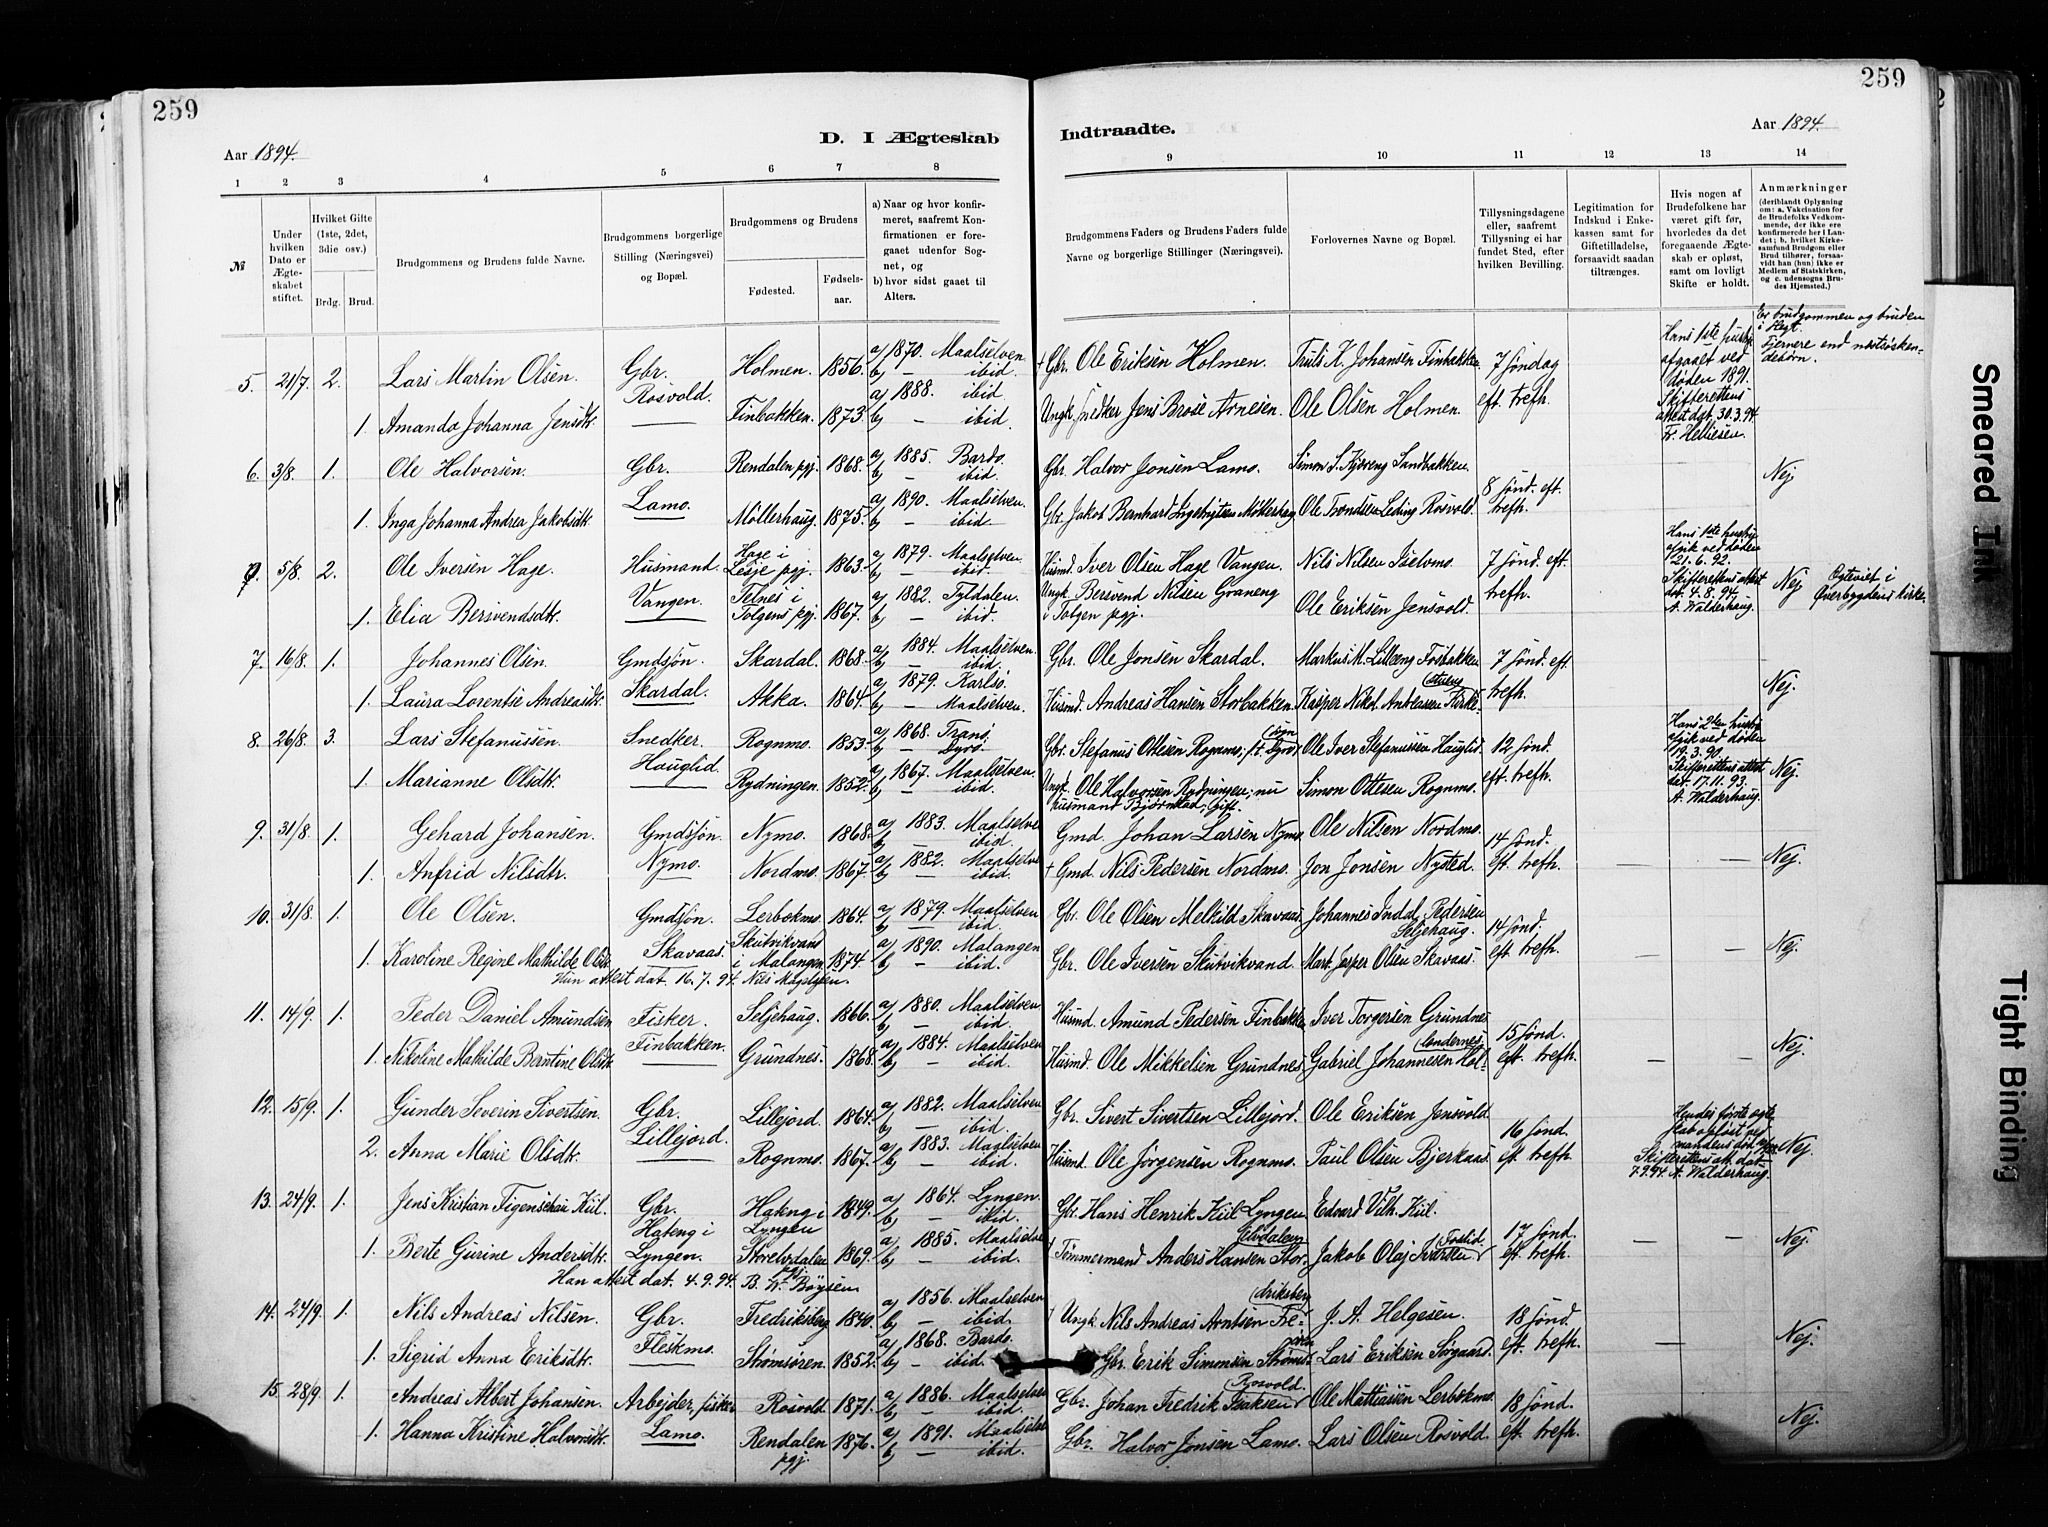 259
259
Aar 1894.
D. I Ægteskab
Indtraadte.
Aar 1894.
1 2 3 4 5 6 7 8 9 10 11 12 13 14
№
Under hvilken Dato er Ægteskabet stiftet.
Hvilket Gifte (1ste, 2det, 3die osv.)
Brdg. Brud.
Brudgommens og Brudens fulde Navne.
Brudgommens borgerlige Stilling (Næringsvei) og Bopæl.
Brudgommens og Brudens
Fødested.
Fødselsaar.
a) Naar og hvor konfirmeret, saafremt Konfirmationen er foregaaet udenfor Sognet, og
b) hvor sidst gaaet til Alters.
Brudgommens Faders og Brudens Faders fulde Navne og borgerlige Stillinger (Næringsvei).
Forlovernes Navne og Bopæl.
Tillysningsdagene eller, saafremt Tillysning ei har fundet Sted, efter hvilken Bevilling.
Legitimation for Indskud i Enkekassen samt for Giftetilladelse, forsaavidt saadan tiltrænges.
Hvis nogen af Brudefolkene har været gift før, hvorledes da det foregaaende Ægteskab er opløst, samt om lovligt Skifte er holdt.
Anmærkninger (deriblandt Oplysning om: a. Vakcination for de Brudefolks Vedkommende, der ikke ere konfirmerede her i Landet; b. hvilket Kirkesamfund Brudgom eller Brud tilhører, forsaavidt han (hun) ikke er Medlem af Statskirken, og c. udensogns Brudes Hjemsted.)
5. 21/7. 2. Lars Martin Olsen. Gbr. Rosvold. Holmen. 1856. a) 1870. Maalselven b) — ibid. + Gbr. Ole Eriksen Holmen. Truls K. Johansen Finbakken 7 søndag eft. trefh. Hans 1ste hustru afgaaet ved døden 1891. Skifterettens attest dat. 30.3.94. Fr. Helliesen. Er brudgommen og bruden i slegt. Fjernere end næstsøskendebørn.
1. Amanda Johanna Jensdtr. Finbakken. 1873. a) 1888. ibid b) — ibid. Ungk. snedker Jens Brose Arnesen. Ole Olsen Holmen.
6. 3/8. 1. Ole Halvorsen. Gbr. Lamo. Rendalen pgj. 1868. a) 1885. Bardo. b) — ibid. Gbr. Halvor Jonsen Lamo. Simon S. Kjæreng Sandbakken. 8 sønd. eft. trefh. — Nej
1. Inga Johanna Andrea Jakobsdtr. Møllerhaug. 1875. a) 1890. Maalselven. b) — ibid. Gbr. Jakob Bernhard Ingebrigtsen Møllerhaug Ole Trondsen Leding Rosvold.
5/8. 2. Ole Iversen Hage. Husmand. Vangen. Hage i Lesje pgj. 1863. a) 1879. Maalselven b) — ibid. Husmd. Iver Olsen Hage Vangen. Nils Nilsen Iselvmo. 7 sønd. eft. trefh. Hans 1ste hustru afgik ved døden 21.6.92. Skifterettens attest dat. 4.8.94. A. Walderhaug. Nej Ægteviet i Øverbygdens kirke.
1. Elia Bersvendsdtr. Telnes i Tolgens pgj. 1867. a) 1882. Tyldalen. b) — ibid. Ungk. Bersvend Nilsen Graneng i Tolgen pgj. Ole Eriksen Jensvold.
7. 16/8. 1. Johannes Olsen. Gmdsjøn. Skardal. Skardal. 1868. a) 1884. Maalselven. b) — ibid. Gbr. Ole Jonsen Skardal. Markus M. Lilleeng Fosbakken 7 sønd. eft. trefh. — Nej.
1. Laura Lorentse Andreasdtr. Akka. 1864. a) 1879. Karlsø. b) — Maalselven. Husmd. Andreas Hansen Storbakken. Kasper Nikol. Andreassen Kirkestuen
8. 26/8. 3. Lars Stefanussen. Snedker. Hauglid. Rognmo. 1853. a) 1868. Tranø. b) — Dyrø. Gbr. Stefanus Ottesen Rognmo, Ole Iver Stefanussen Hauglid. 12 sønd. eft. trefh. Hans 2den hustru afgik ved døden 19.3.90. Skifterettens attest dat. 17.11.93. A. Walderhaug. Nej.
1. Marianne Olsdtr. Rydningen. 1852. a) 1867. Maalselven. b) — ibid. Ungk. Ole Halvorsen Rydningen, nu husmand Bjørnstad, gift. Simon Ottesen Rognmo.
9. 31/8. 1. Gehard Johansen. Gmdsjøn. Nymo. Nymo. 1868. a) 1883. Maalselven b) — ibid. Gmd. Johan Larsen Nymo Ole Nilsen Nordmo. 14 sønd. eft. trefh. — — Nej.
1. Anfrid Nilsdtr. Nordmo. 1867. a) 1882. Maalselven b) — ibid. + Gmd. Nils Pedersen Nordmo. Jon Jonsen Nysted.
10. 31/8. 1. Ole Olsen. Gmdsjøn. Skavaas. Lerbækmo. 1864. a) 1879. Maalselven b) — ibid. Gbr. Ole Olsen Melkild Skavaas Johannes Indal Pedersen Seljehaug. 14 sønd. eft. trefh. — — Nej.
1. Karoline Regine Mathilde Olsdtr. Skutvikvand i Malangen 1874. a) 1890. Malangen b) — ibid. Gbr. Ole Iversen Skutvikvand. Mart. Jesper Olsen Skavaas.
Hun attest dat. 16.7.94. Nils Møgelgen.
11. 14/9. 1. Peder Daniel Amundsen Fisker. Finbakken. Seljehaug. 1866. a) 1880. Maalselven b) — ibid. Husmd. Amund Pedersen Finbakken Iver Torgersen Grundnes 15 sønd. eft. trefh. — — Nej.
1. Nikoline Mathilde Berntine Olsdtr. Grundnes. 1868. a) 1884. Maalselven b) — ibid. Husmd. Ole Mikkelsen Grundnes. Gabriel Johannesen Holmen
12. 15/9. 1. Gunder Severin Sivertsen. Gbr. Lillejord. Lillejord. 1864. a) 1882. Maalselven b) — ibid. Gbr. Sivert Sivertsen Lillejord. Ole Eriksen Jensvold. 16 sønd. eft. trefh. Hendes første ægteskab opløst ved mandens død. Skifterettens att. dat. 7.9.94. A. Walderhaug. Nej.
2. Anna Marie Olsdtr. Rognmo. 1867. a) 1883. Maalselven b) — ibid. Husmd. Ole Jørgensen Rognmo. Paul Olsen Bjerkaas.
13. 24/9. 1. Jens Kristian Figenschau Kiil. Gbr. Hateng i Lyngen. Hateng i Lyngen 1849. a) 1864. Lyngen. b) — ibid. Gbr. Hans Henrik Kiil Lyngen Edvard Vilh. Kiil. 17 sønd. eft. trefh. — — Nej.
1. Berte Gurine Andersdtr. Storelvdalen pgj. 1869. a) 1885. Maalselven b) — ibid. Tømmermand Anders Hansen Storelvdalen Jakob Olaj Iversen Fossli.
Han attest dat. 4.9.94. B. W. Bøysen
14. 24/9. 1. Nils Andreas Nilsen. Gbr. Fleskmo. Fredriksberg 1840. a) 1856. Maalselven b) — ibid. Ungk. Nils Andreas Arntsen Fredriksberg J. A. Helgesen. 18 sønd. eft. trefh. — Nej.
1. Sigrid Anna Eriksdtr. Strømsøren. 1852. a) 1868. Bardo. b) — ibid. Gbr. Erik Simonsen Strømsøren Lars Eriksen Sørgaard.
15. 28/9. 1. Andreas Albert Johansen. Arbejder, fisker Lamo. Rosvold. 1871. a) 1886. Maalselven b) — ibid. Gbr. Johan Fredrik Isaksen Rosvold. Ole Mattiassen Lerbekmo. 18 sønd. eft. trefh. Nej.
1. Hanna Kristine Halvorsdtr. Rendalen pgj. 1876. a) 1891. Maalselven b) — ibid. Gbr. Halvor Jonsen Lamo. Lars Olsen Rosvold.
Smeared Ink
Tight Binding